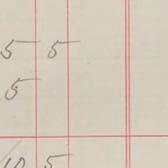 5 5
5
10 5